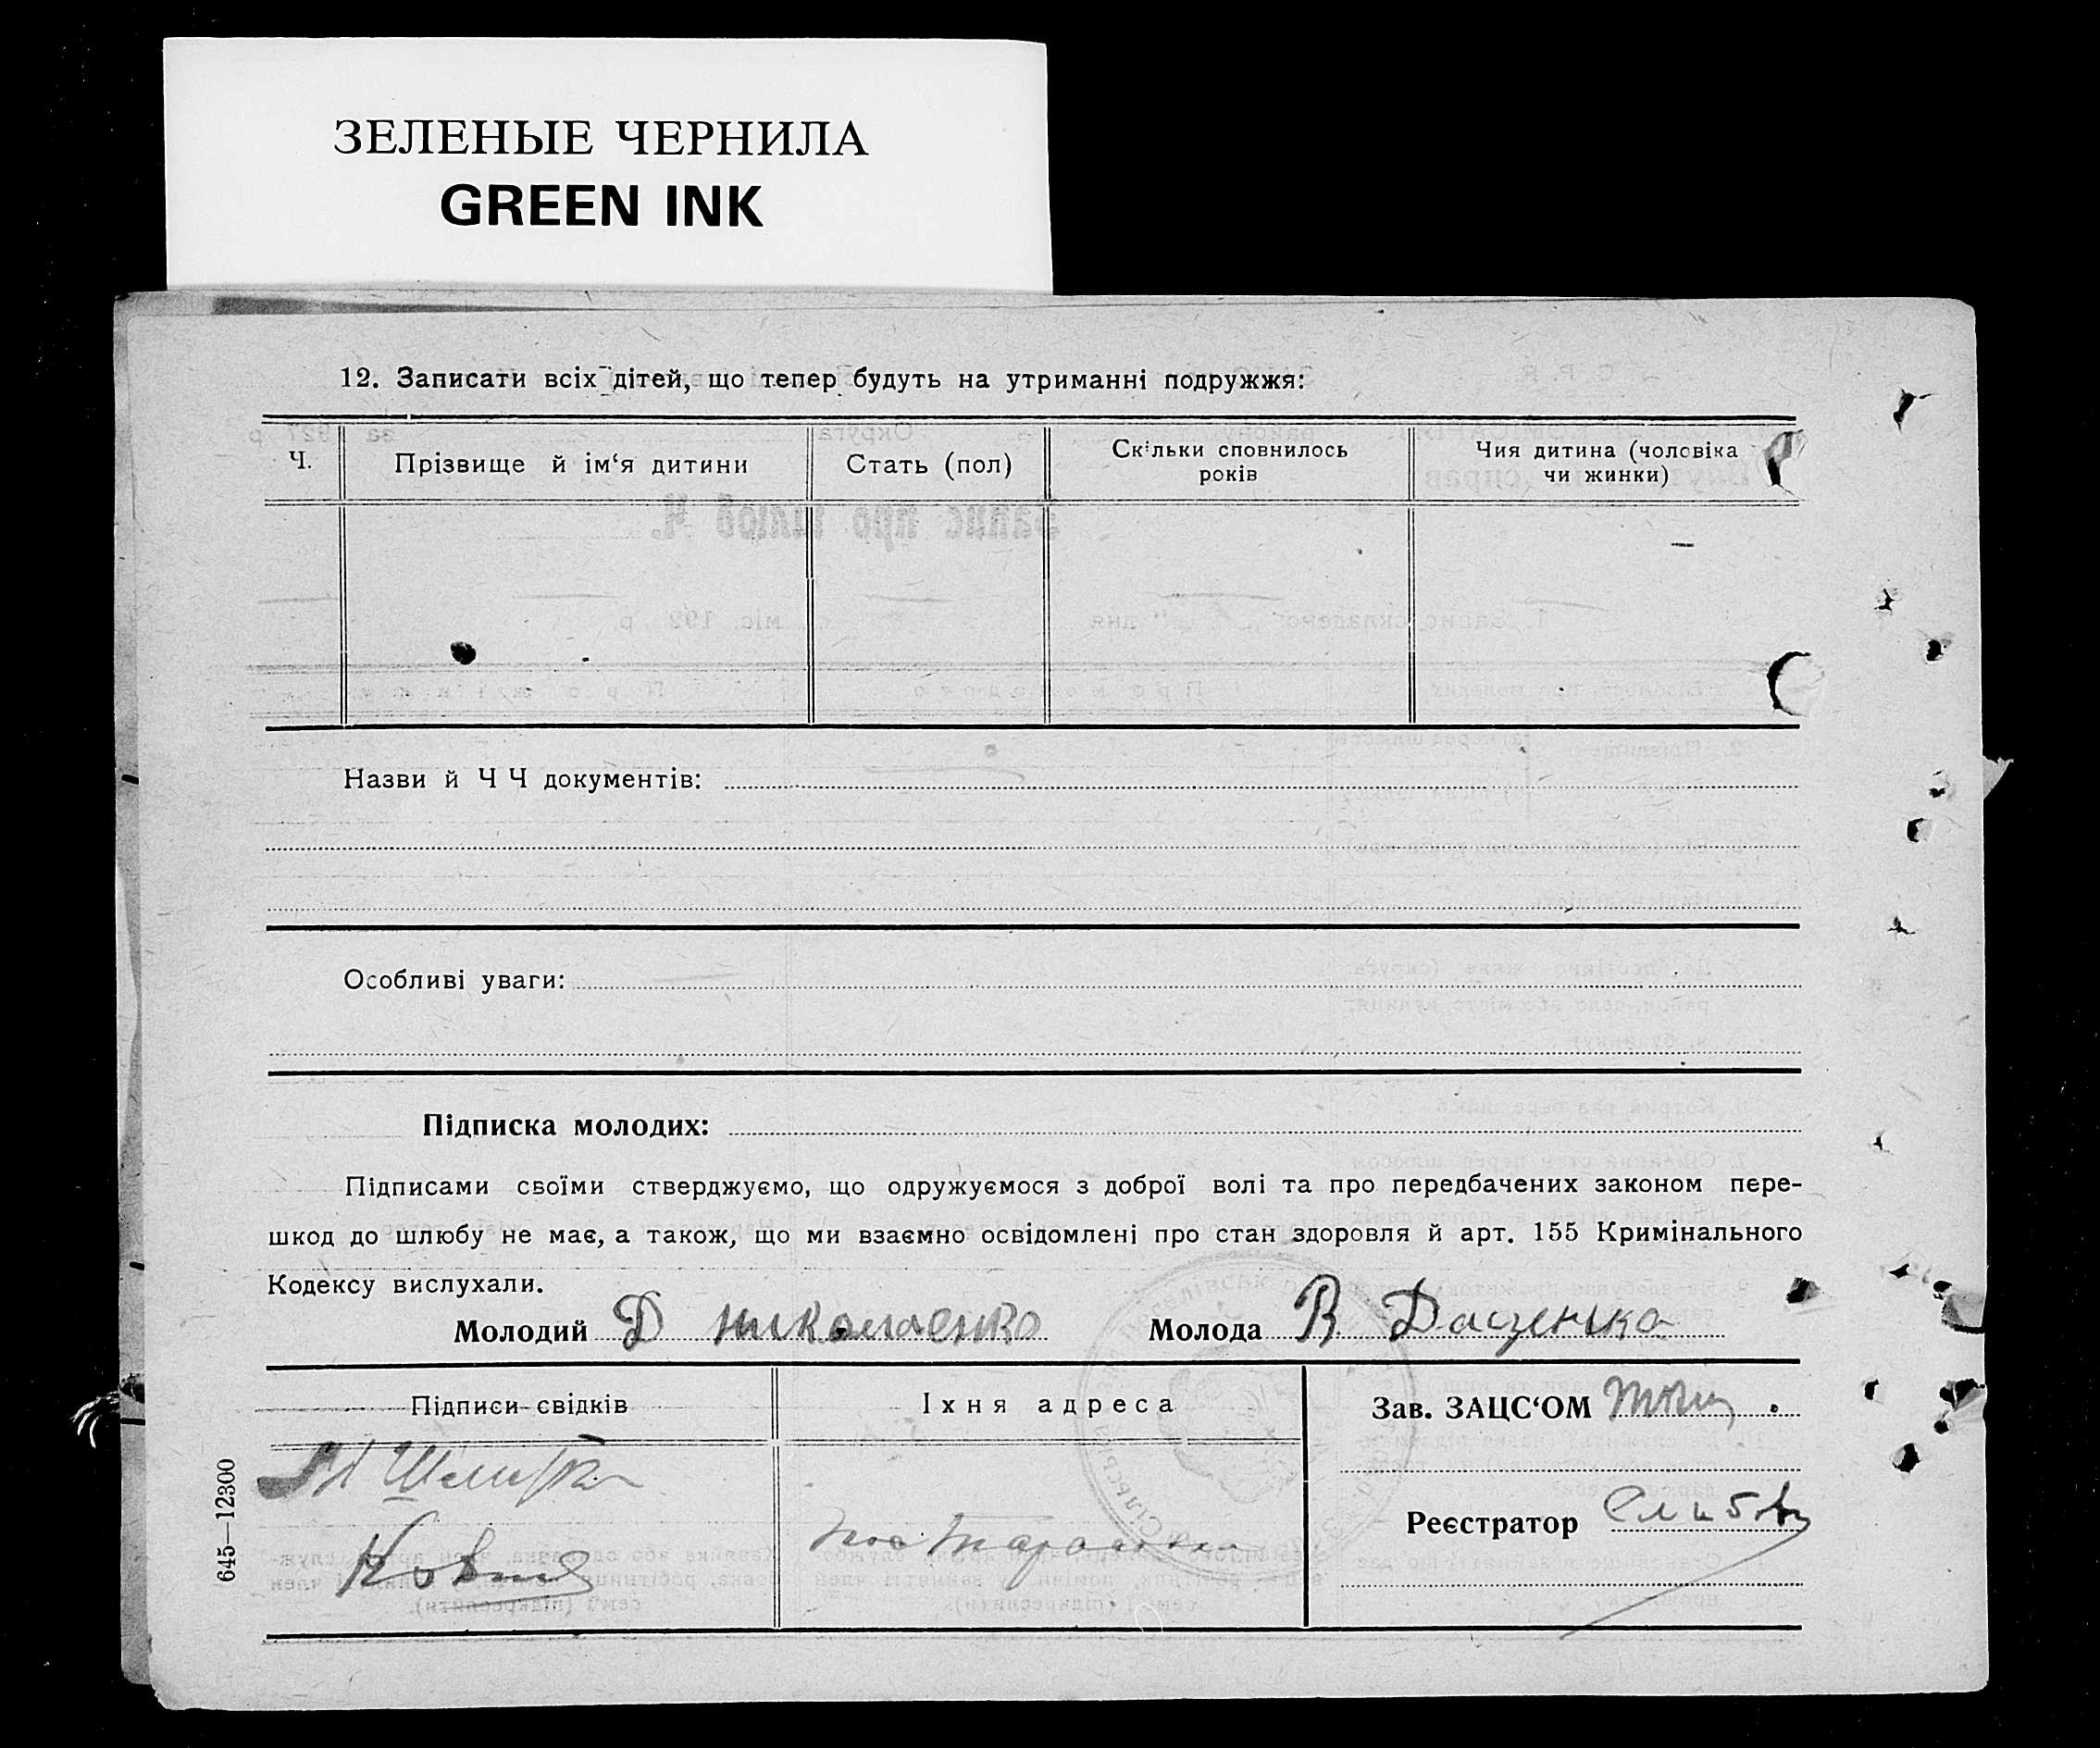 ЗЕЛЕНЫЕ ЧЕРНИЛА
GREEN INK
12. Записати всіх дітей, що тепер будуть на утриманні подружжя:
Ч.
Прізвище й ім‘я дитини
Стать (пол)
Скільки сповнилось
років
Чия дитина (чоловіка
чи жинки)
Назви й Ч Ч документів:
Особливі уваги:
Підписка молодих:
Підписами своїми стверджуємо, що одружуємося з доброї волі та про передбачених законом пере-
шкод до шлюбу не має, а також, що ми взаємно освідомлені про стан здоровля й арт. 155 Кримінального
Кодексу вислухали.
Молодий Д Николаенко Молода В Даценко
Підписи свідків
Їхня адреса
Зав. ЗАЦС‘ОМ
Реєстратор
645—12300